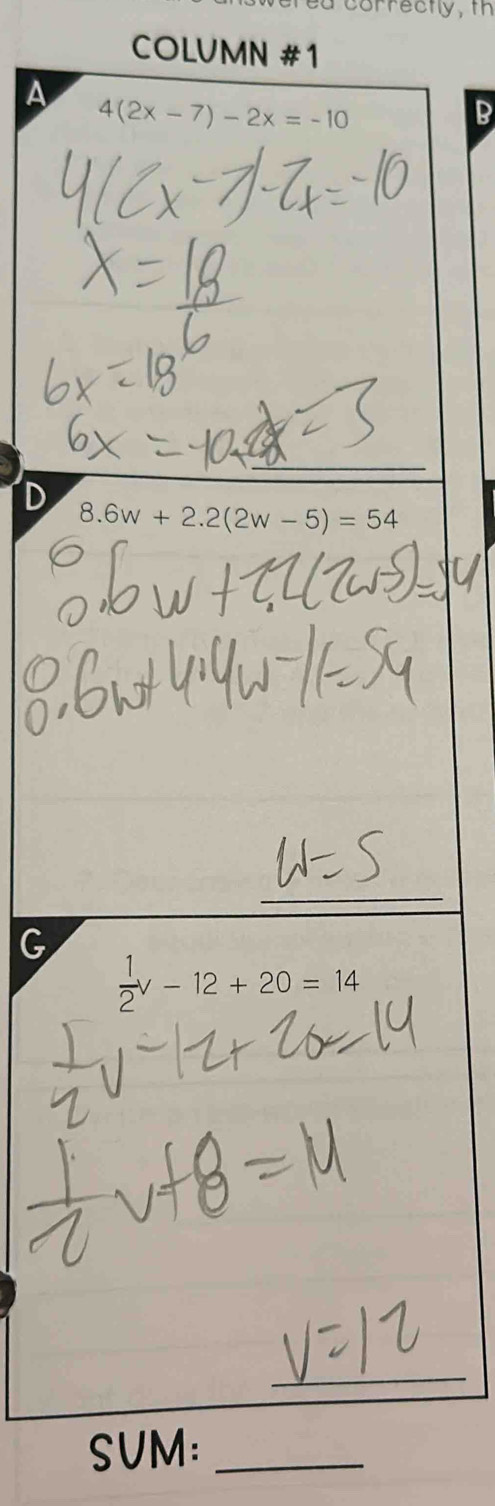 answered correctly, th
COLUMN #1
A
B
4(2x - 7) - 2x = -10
4(2x-7)-2x=-10
x = 18/6
6x = 18
6x = -10+28
x = 3
D
8.6w + 2.2(2w - 5) = 54
8.6w+2.2(2w-5)=54
8.6w+4.4w-11=54
w=5
G
1/2v - 12 + 20 = 14
1/2v-12+20=14
1/2v+8=14
v=12
SUM: